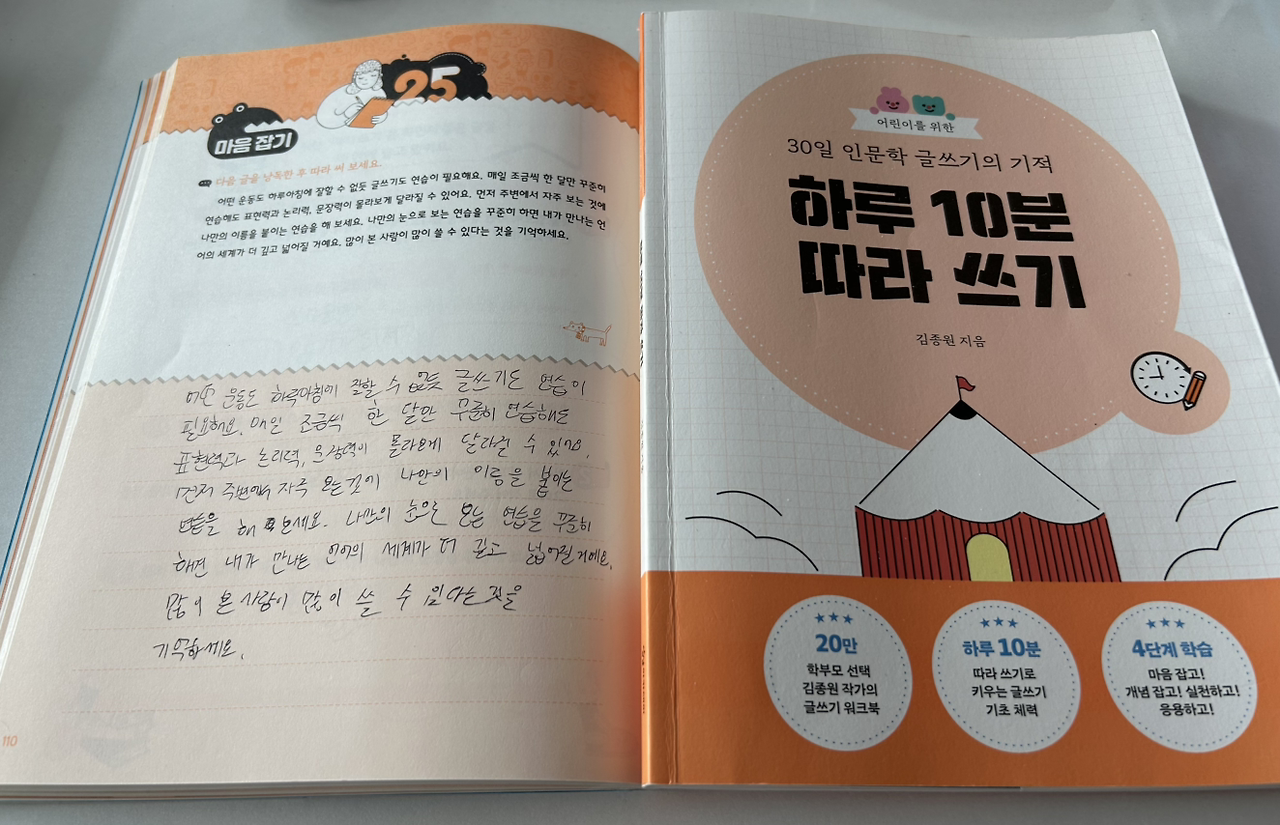 25
마음 잡기
다음 글을 낭독한 후 따라 써 보세요.
어떤 운동도 하루아침에 잘할 수 없듯 글쓰기도 연습이 필요해요. 매일 조금씩 한 달만 꾸준히
연습해도 표현력과 논리력, 문장력이 몰라보게 달라질 수 있어요. 먼저 주변에서 자주 보는 것에
나만의 이름을 붙이는 연습을 해 보세요. 나만의 눈으로 보는 연습을 꾸준히 하면 내가 만나는 언
어의 세계가 더 깊고 넓어질 거예요. 많이 본 사람이 많이 쓸 수 있다는 것을 기억하세요.
어떤 운동도 하루아침에 잘할 수 없듯 글쓰기도 연습이
필요해요. 매일 조금씩 한 달만 꾸준히 연습해도
표현력과 논리력, 문장력이 몰라보게 달라질 수 있어요.
먼저 주변에서 자주 보는 것에 나만의 이름을 붙이는
연습을 해 보세요. 나만의 눈으로 보는 연습을 꾸준히
하면 내가 만나는 언어의 세계가 더 깊고 넓어질 거예요.
많이 본 사람이 많이 쓸 수 있다는 것을
기억하세요.
110
어린이를 위한
30일 인문학 글쓰기의 기적
하루 10분
따라 쓰기
김종원 지음
20만
학부모 선택
김종원 작가의
글쓰기 워크북
하루 10분
따라 쓰기로
키우는 글쓰기
기초 체력
4단계 학습
마음 잡고!
개념 잡고! 실천하고!
응용하고!